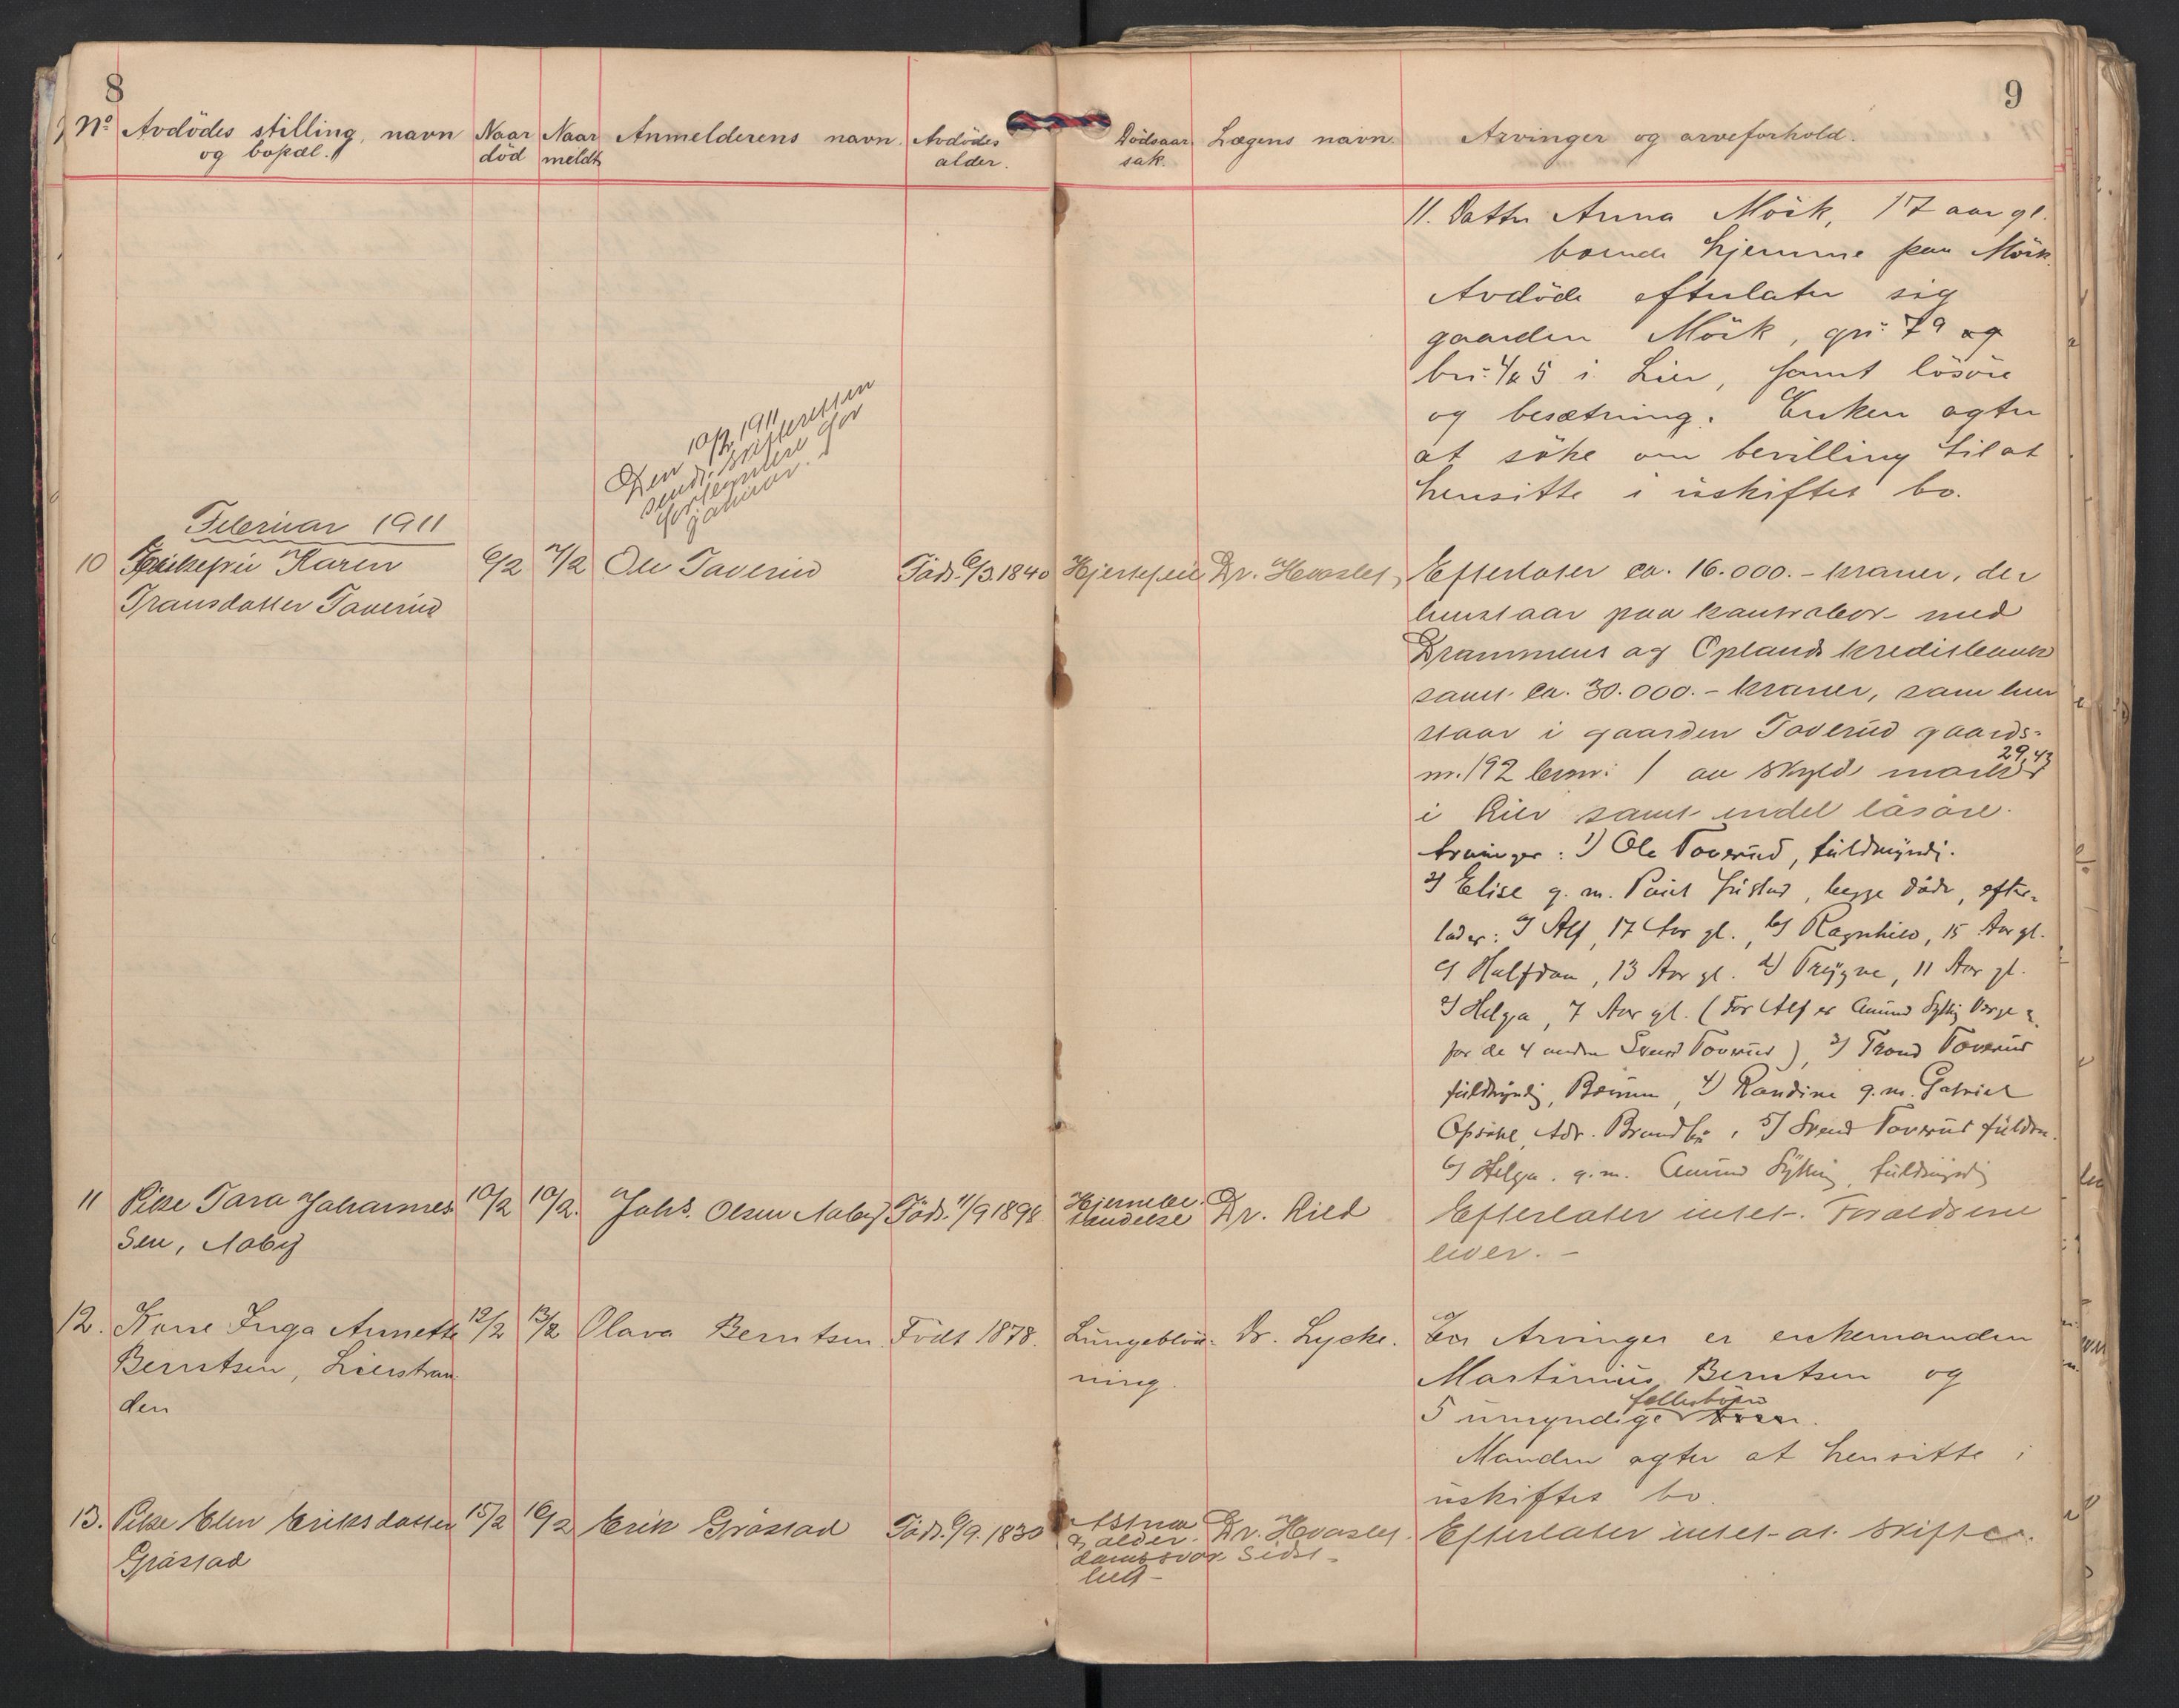 8
No Avdödes stilling, navn
og bopæl.
Naar
död
Naar
meldt
Anmelderens navn.
Avdödes
alder.
9
Dödsaar
sak.
Lægens navn.
Arvinger og arveforhold.
11. Datter Anna Mörk, 17 aar gl.
boende hjemme paa Mörk.
Avdöde efterlater sig
gaarden Mörk, gr: 79 og
br: 4 & 5 i Lier, samt lösöre
og besætning. Enken agter
at söke om bevilling til at
hensitte i uskiftet bo.
Den 10/2 1911
sendt skifteretten
fortegnelse for
januar.
Februar 1911
10 Karen
Transdatter Toverud
6/2 7/2 Ole Toverud Född. 6/3.1840 Hjertefeil Dr. Hvoslef,
Efterlater ca. 16.000.- kroner, der
henstaar paa kontrabok med
Drammens og Oplands kreditbank
samt ca. 30.000.- kroner, som hun
staar i gaarden Toverud gaards-
nr. 192 brnr: 1 av skyld mark 29,43
i Lier samt endel lösöre.
Arvinger: 1) Ole Toverud, fuldmyndi.
2) Elise g. m. Paul Gustad, begge döde, efter-
lader: a) Alf, 17 Aar gl., b) Ragnhild, 15 Aar gl.
c) Halfdan, 13 Aar gl. d) Trygve, 11 Aar gl.
e) Helga, 7 Aar gl. (For Alf er Amund Sylling Verge &
for de 4 andre Svend Toverud), 3) Trond Toverud
fuldmyndig, 4) Randine g. m. Gabriel
Opdahl, Adr. Brandbu, 5) Svend Toverud fuldm.
6) Helga. g. m. Amund Sylling, fuldmyndig
11 Pike Tara Johannes
sen, Nøby
10/2 10/2. Johs. Olsen Född. 11/9 1898
Hjernebe-
tændelse
Dr. Ried
Efterlater intet. Forældrene
lever. -
12. Kone Inga Annette
Berntsen, Lierstran
den
12/2 13/2 Olava Berntsen. Födt 1878. Lungeblöd-
ning.
Dr. Lycke.
Arvinger er enkemanden
Martinius Berntsen og
fellesbörn
5 umyndige
Manden agter at hensitte i
uskiftet bo.
13. Pike Elen Eriksdatter
Gråstad
15/2 16/2 Erik Gråstad Född. 6/9.1830
Astma
& alder-
domssvak
Dr. Hvoslef.
Sidst-
Efterlater intet at skifte.